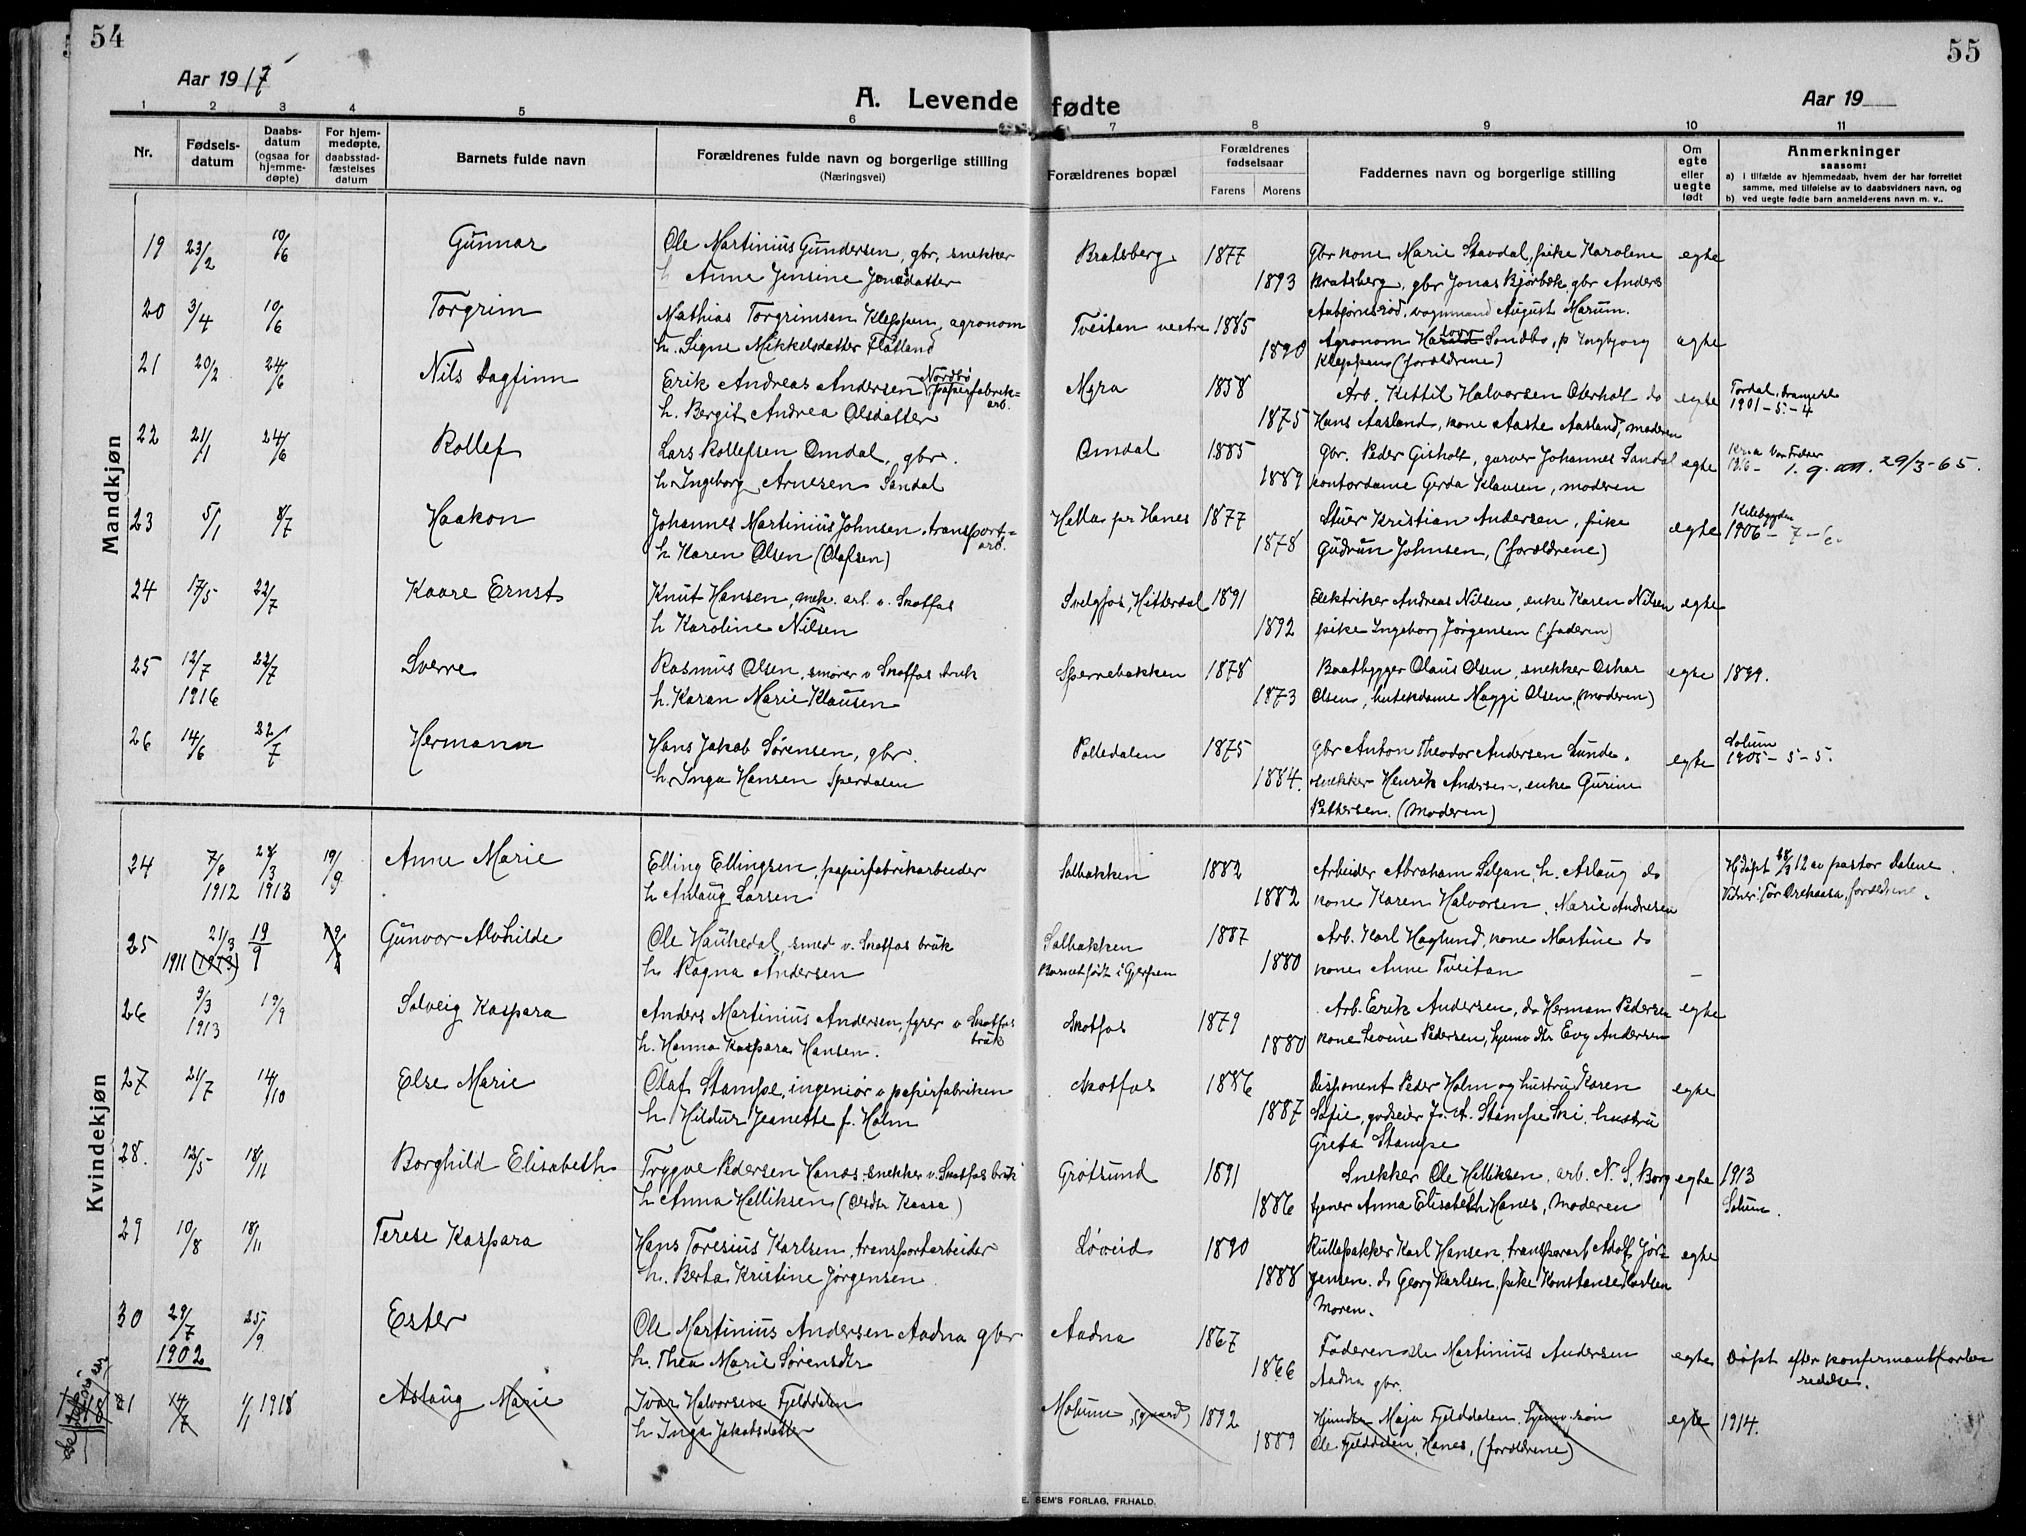 54
55
Aar 1917
A. Levende fødte
Aar 19
1 2 3 4 5 6 7 8 9 10 11
Nr.
Fødsels-datum
Daabs-datum (ogsaa for hjemme-døpte)
For hjem-medøpte, daabsstad-fæstelses datum
Barnets fulde navn
Forældrenes fulde navn og borgerlige stilling (Næringsvei)
Forældrenes bopæl
Forældrenes fødselsaar
Farens Morens
Faddernes navn og borgerlige stilling
Om egte eller uegte født
Anmerkninger
saasom:
a) i tilfælde av hjemmedaab, hvem der har forrettet samme, med tilføielse av to daabsvidners navn, og
b) ved uegte fødte barn anmelderens navn m. v..
Mandkjøn
19 23/2 10/6 Gunnar Ole Martinius Gundersen, gbr, snekker Bratsberg 1877 Gbr kone Marie Stavdal, pike Karoline egte
h Anne Jensine Jonasdatter 1893 Bratsberg, gbr Jonas Bjørbæk, gbr Anders
Aabjørnsrød, vognmand August Marum.
20 3/4 10/6 Torgrim Mathias Torgrimsen Kleppen, agronom Tveitan vestre 1885
h. Signe Mikkelsdatter Flatland 1890 Agronom Sondbø, p Ingbjorg egte
Kleppen (forældrene)
21 20/2 24/6 Nils Dagfinn Erik Andreas Andersen Nordbø, papirfabrik-arb. Myra 1858 Arb. Kittil Halvorsen Oterholt do egte Tordal, Drangedal
h. Bergit Andrea Olsdatter 1875 Hans Aasland, kone Aaste Aasland, moderen 1901-5-4
22 21/1 24/6 Rollef Lars Rollefsen Omdal, gbr. Omdal 1885 Gbr. Peder Gisholt, garver Johannes Sandal egte
h. Ingeborg Arnesen Sandal 1889 kontordame Gerda Klausen, moderen 29/3-65.
23 5/1 8/7 Haakon Johannes Martinius Johnsen, transport-arb. Hella pr Hanes 1877 Stuer Kristian Andersen, pike egte Kilebygden
h Karen Olsen (Olafsen) 1878 Gudrun Johnsen, (forældrene) 1906-7-6.
24 17/5 22/7 Kaare Ernst Knut Hansen, mek. arb. v. Skotfos Svelgfos, Hitterdal 1891 Elektriker Andreas Nilsen, enke Karen Nilsen egte
h Karoline Nilsen 1892 pike Ingeborg Jørgensen (faderen)
25 12/7 1916 22/7 Sverre Rasmus Olsen, smører v Skotfos bruk Spernebakken 1878 Baatbygger Olaus Olsen, snekker Oskar egte 1899.
h. Karan Marie Klausen 1873 Olsen, butikdame Maggi Olsen, (moderen)
26 14/6 22/7 Hermann Hans Jakob Sørensen, gbr. Polledalen 1875 Gbr Anton Theodor Andersen Lunde, egte Solum
h Inga Hansen Sperdalen 1884. snekker Henrik Andersen, enke Gurine 1905-5-5.
Pettersen. (Moderen)
Kvindekjøn
24 7/6 1912 28/3 1913 19/9 Anne Marie Elling Ellingsen, papirfabrikarbeider Solbakken 1882 Arbeider Abraham Selgan, h. Aslaug do Hjdøpt 12 av pastor Dalene.
h Aslaug Larsen 1882 kone Karen Halvorsen, Marie Andresen forældrene.
25 21/3 1911 (1913) 19/9 Gunvor Alvhilde Ole Haukedal, smed v. Skotfos bruk Solbakken 1887 Arb. Karl Haglund, kone Martine do
h. Ragna Andersen Barnet født i Gjerpen 1880 kone Anne Tveitan –
26 9/3 1913 19/9 Solveig Kaspara Anders Martinius Andersen, fyrer v Skotfos bruk Skotfos 1879 Arb. Erik Andersen, do Herman Pedersen egte
h. Hanna Kaspara Hansen. 1880 kone Lovine Pedersen, hjemv dtr Evy Andersen
27 21/7 14/10 Else Marie Olaf Stampe, ingeniør v papirfabriken Skotfos 1886 Disponent Peder Holm og hustru Karen egte
h. Hildur Jeanette f. Holm 1887 Sofie, godseier J. A. Stampe Ski, hustru
Greta Stampe
28. 12/5 18/11 Borghild Elisabeth Trygve Pedersen Hanes, snekker v. Skotfos bruk Grøtsund 1891 Snekker Ole Helliksen, arb. N. S. Borg egte 1913
h Anna Helliksen (Olsdtr Kaasa) 1886 tjener Anna Elisabeth Hanes, moderen Solum.
29 10/8 18/11 Terese Kaspara Hans Toresius Karlsen, transportarbeider Løveid 1890 Rullepakker Karl Hansen, transportarb Adolf Jør- egte
h. Berta Kristine Jørgensen 1888 gensen. do Georg Karlsen, pike Konstanse Karlsen
Moren.
30 29/7 1902 25/9 Ester Ole Martinius Andersen Aadna gbr Aadna 1867 Faderen Ole Martinius Andersen egte Døpt efter konfirmantforbe-
h. Thea Marie Sørensdtr 1866 Aadna gbr. redelse.
31 14/7 1/1 1918 Aslaug Marie Ivar Halvorsen Fjelddalen Molum (gaard) 1892 Maja Fjelddalen, hjemv. søn egte 1914.
h Inga Jakobsdatter 1889 Ole Fjelddalen, Hanes, (forældrene)
E. SEM'S FORLAG, FR.HALD.